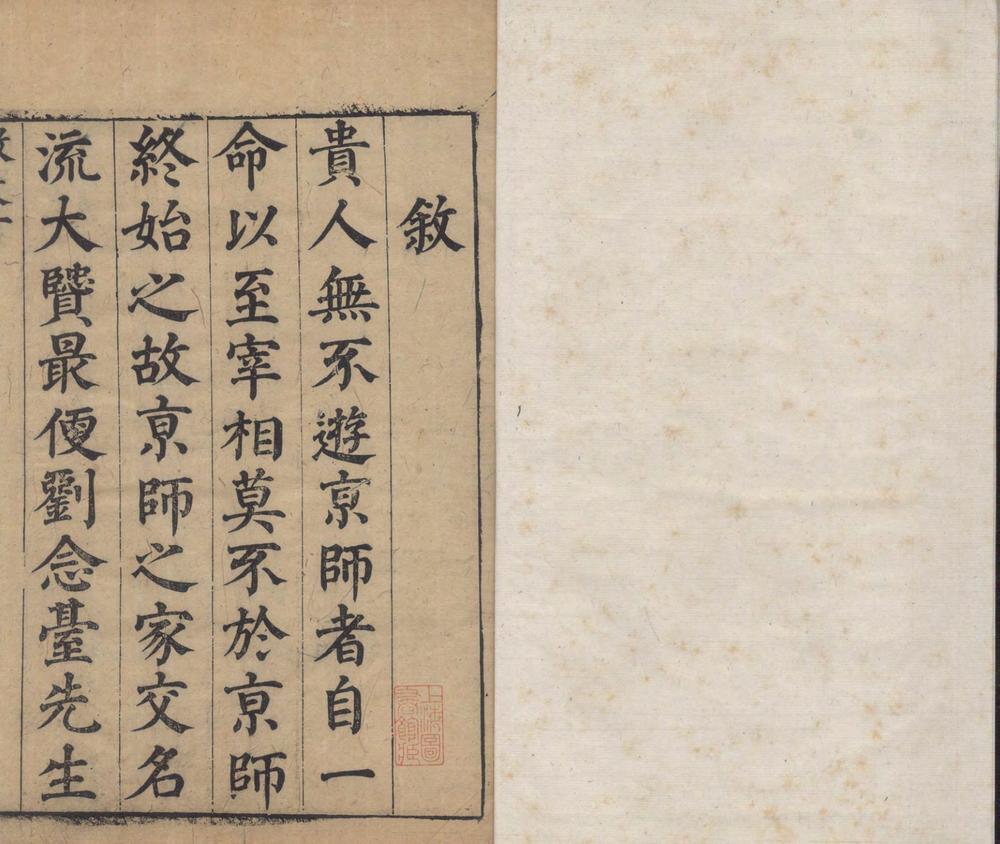 敘
貴人無不遊京師者自一
命以至宰相莫不於京師
終始之故京師之家交名
流大贒最便劉念臺先生
上海圖
書館藏